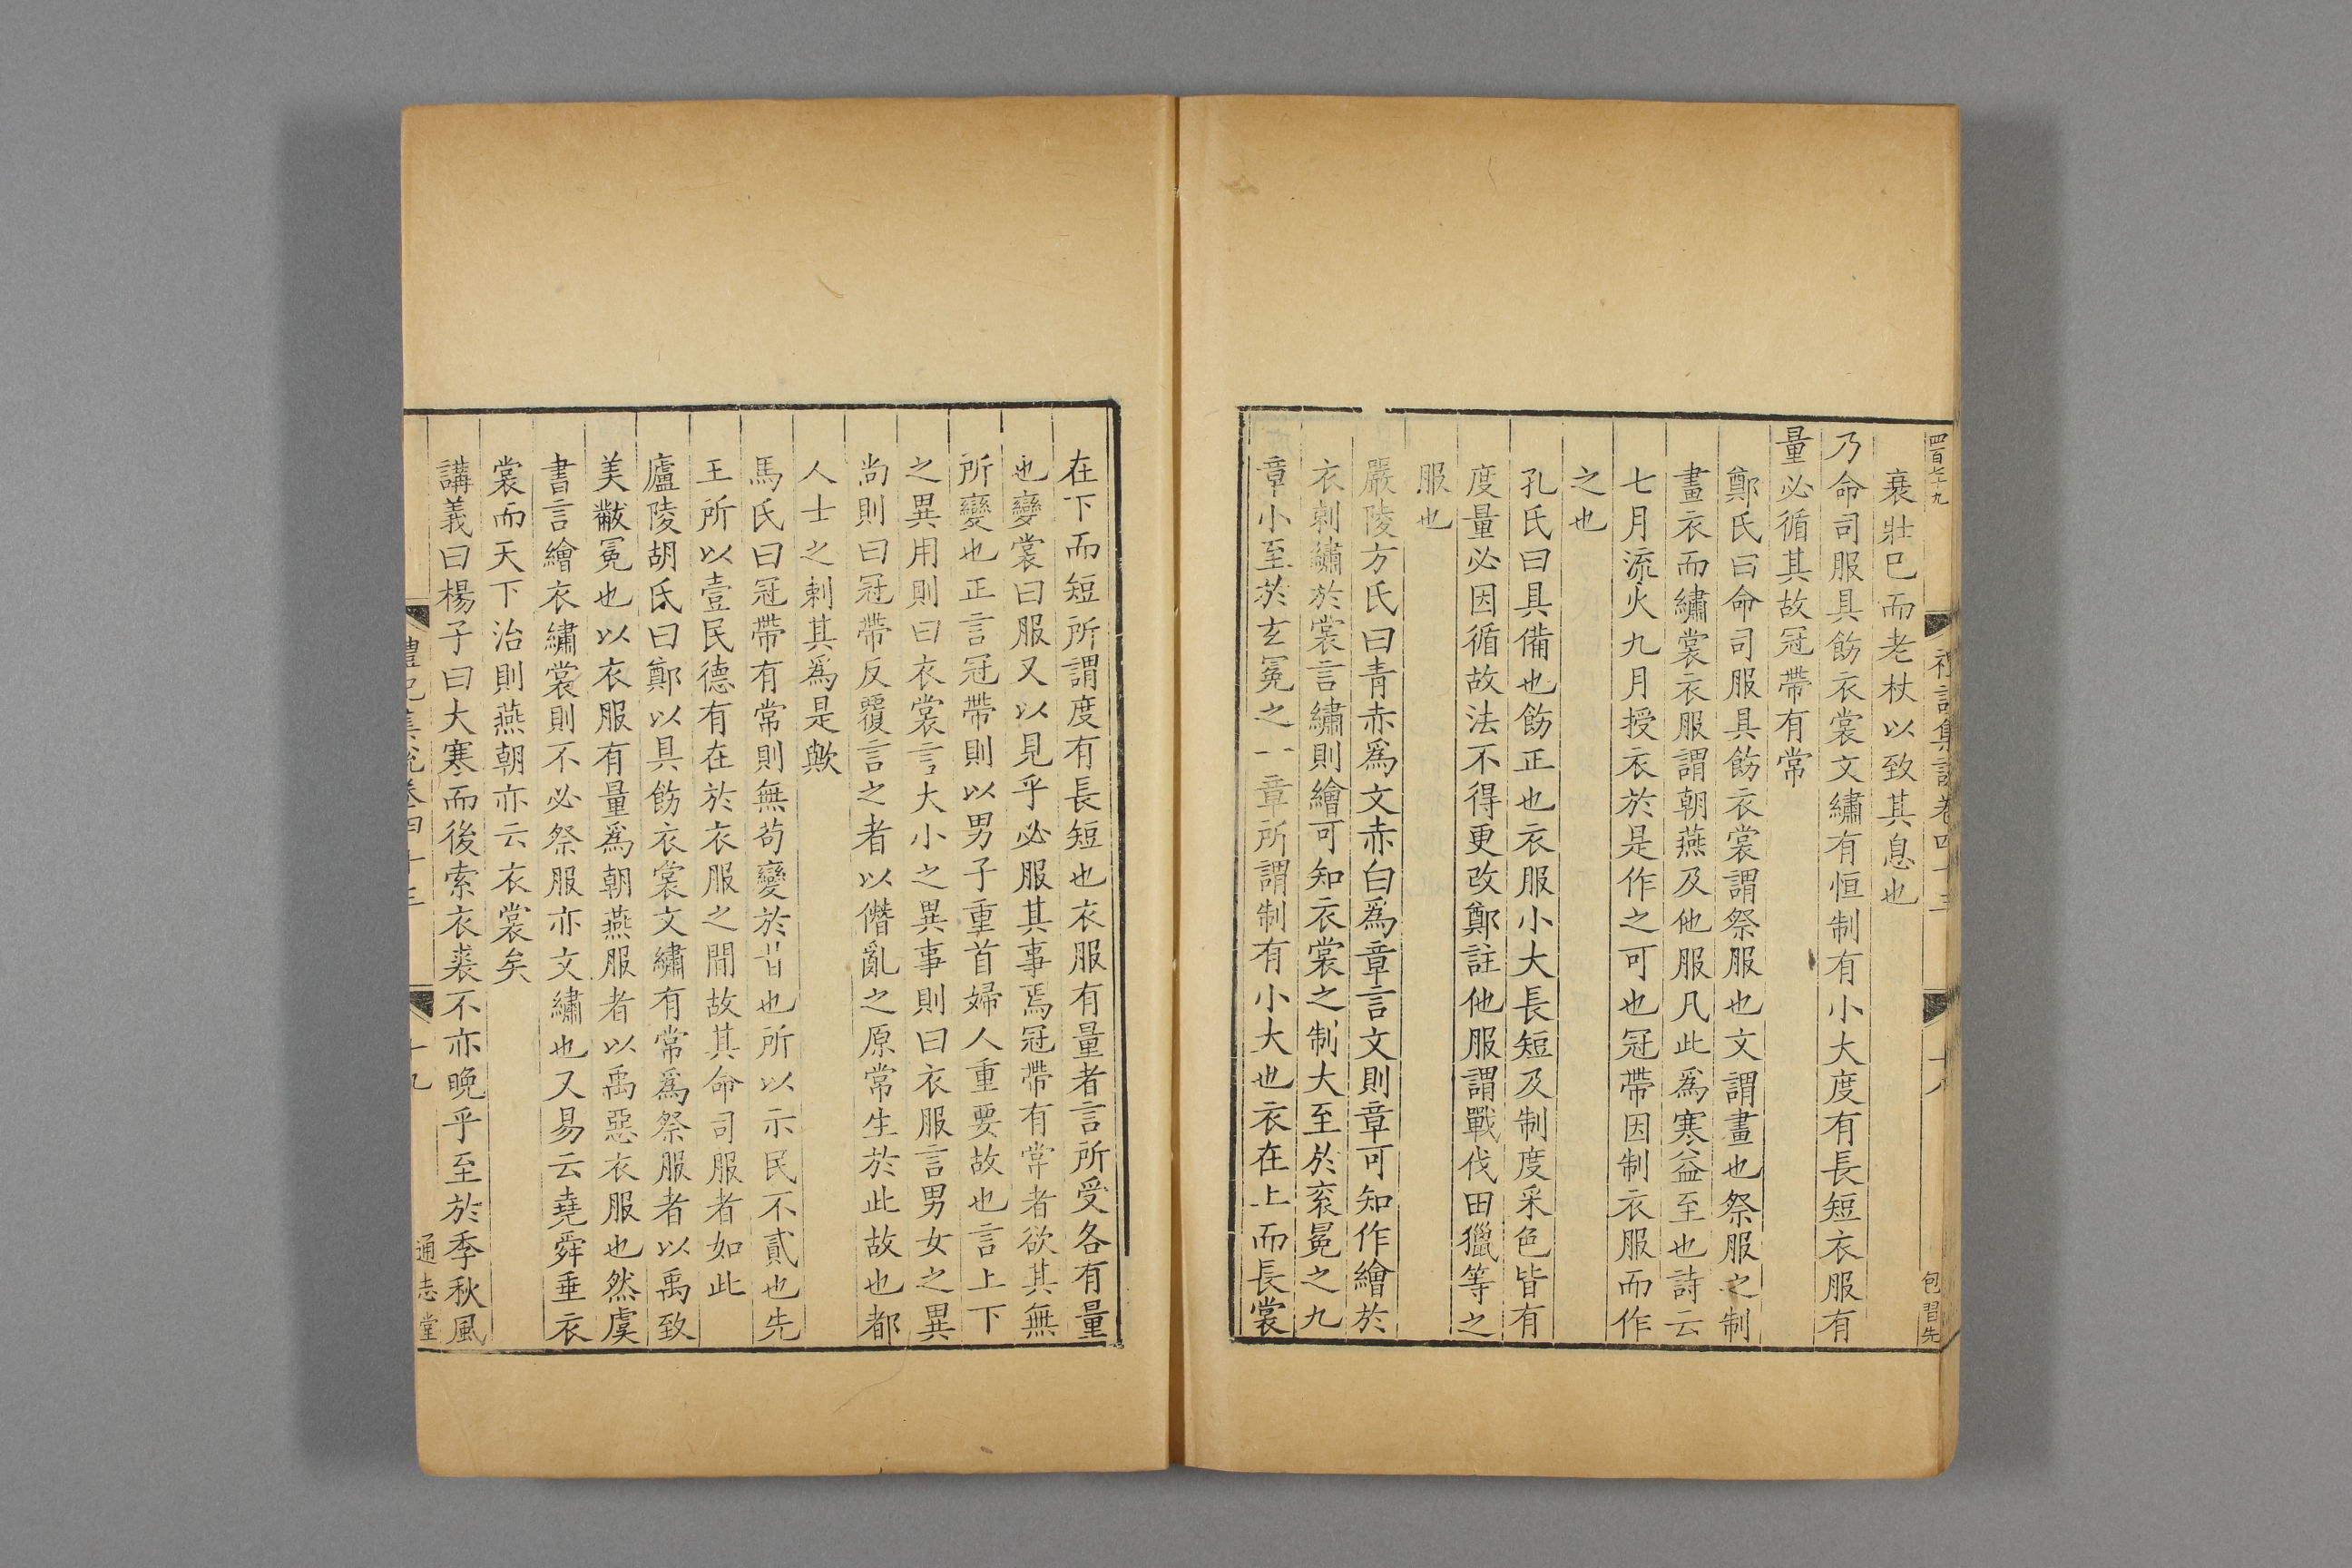 四百七十九
禮記集說卷四十三
十八
包習先
衰壯已而老杖以致其息也
乃命司服具飭衣裳文繡有恒制有小大度有長短衣服有
量必循其故冠帶有常
鄭氏曰命司服具飭衣裳謂祭服也文謂畫也祭服之制
畫衣而繡裳衣服謂朝燕及他服凡此爲寒益至也詩云
七月流火九月授衣於是作之可也冠帶因制衣服而作
之也
孔氏曰具備也飭正也衣服小大長短及制度采色皆有
度量必因循故法不得更改鄭註他服謂戰伐田獵等之
服也
嚴陵方氏曰青赤爲文赤白爲章言文則章可知作繪於
衣刺繡於裳言繡則繪可知衣裳之制大至於衮冕之九
章小至於玄冕之一章所謂制有小大也衣在上而長裳
在下而短所謂度有長短也衣服有量者言所受各有量
也變裳曰服又以見乎必服其事焉冠帶有常者欲其無
所變也正言冠帶則以男子重首婦人重要故也言上下
之異用則曰衣裳言大小之異事則曰衣服言男女之異
尚則曰冠帶反覆言之者以僭亂之原常生於此故也都
人士之刺其爲是歟
馬氏曰冠帶有常則無苟變於昔也所以示民不貳也先
王所以壹民德有在於衣服之間故其命司服者如此
廬陵胡氏曰鄭以具飭衣裳文繡有常爲祭服者以禹致
美黻冕也以衣服有量爲朝燕服者以禹惡衣服也然虞
書言繪衣繡裳則不必祭服亦文繡也又易云堯舜垂衣
裳而天下治則燕朝亦云衣裳矣
講義曰楊子曰大寒而後索衣裘不亦晚乎至於季秋風
禮記集說卷四十三
十九
通志堂